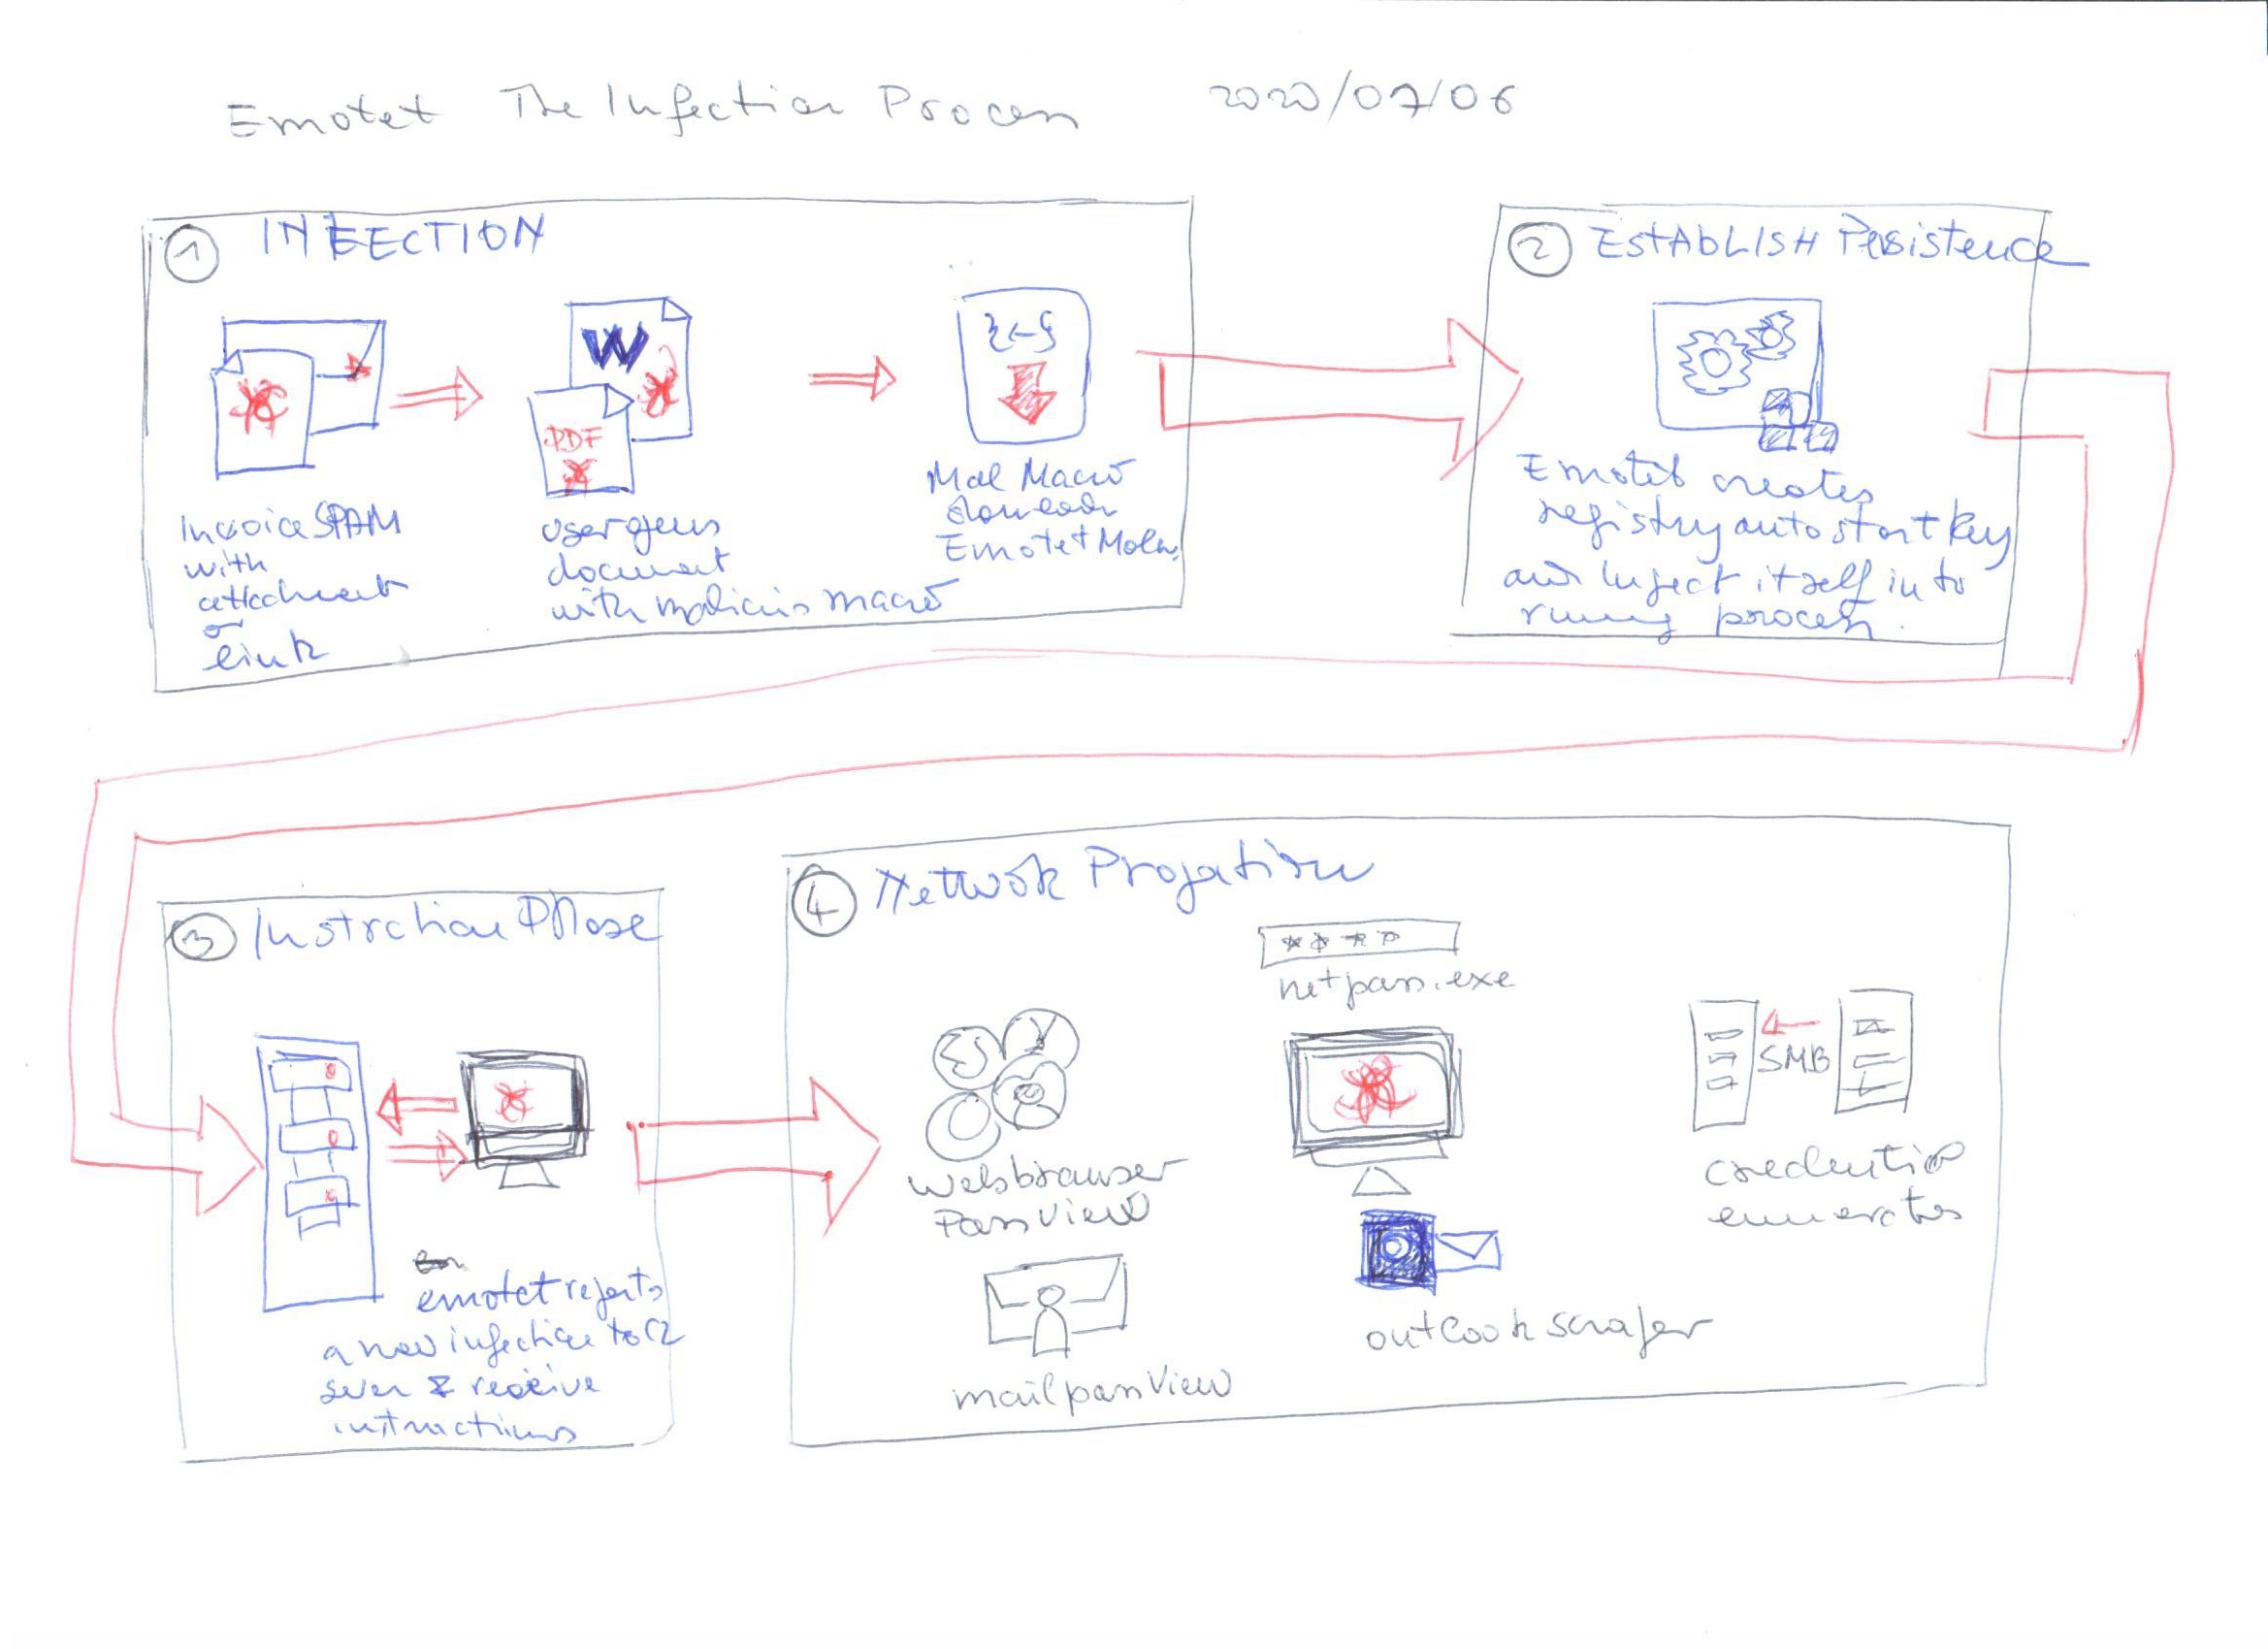 Emotet The Infection Process 2020/07/06
1 INFECTION
2 EstAbLISH Persistence
W
PDF
Invoice SPAM
with
attachment
or
link
user opens
document
with malicius macro
Mal Macro
download
Emotet
Emotet creates
registry auto start key
and Inject itself into
process.
3 Instrction PHase
emotet reports
a new infection to C2
sever & receive
instructions
4 Network Progation
****
netpass.exe
Webbrowser
PassView
mailpassView
outlook scraper
SMB
credential
enumerator